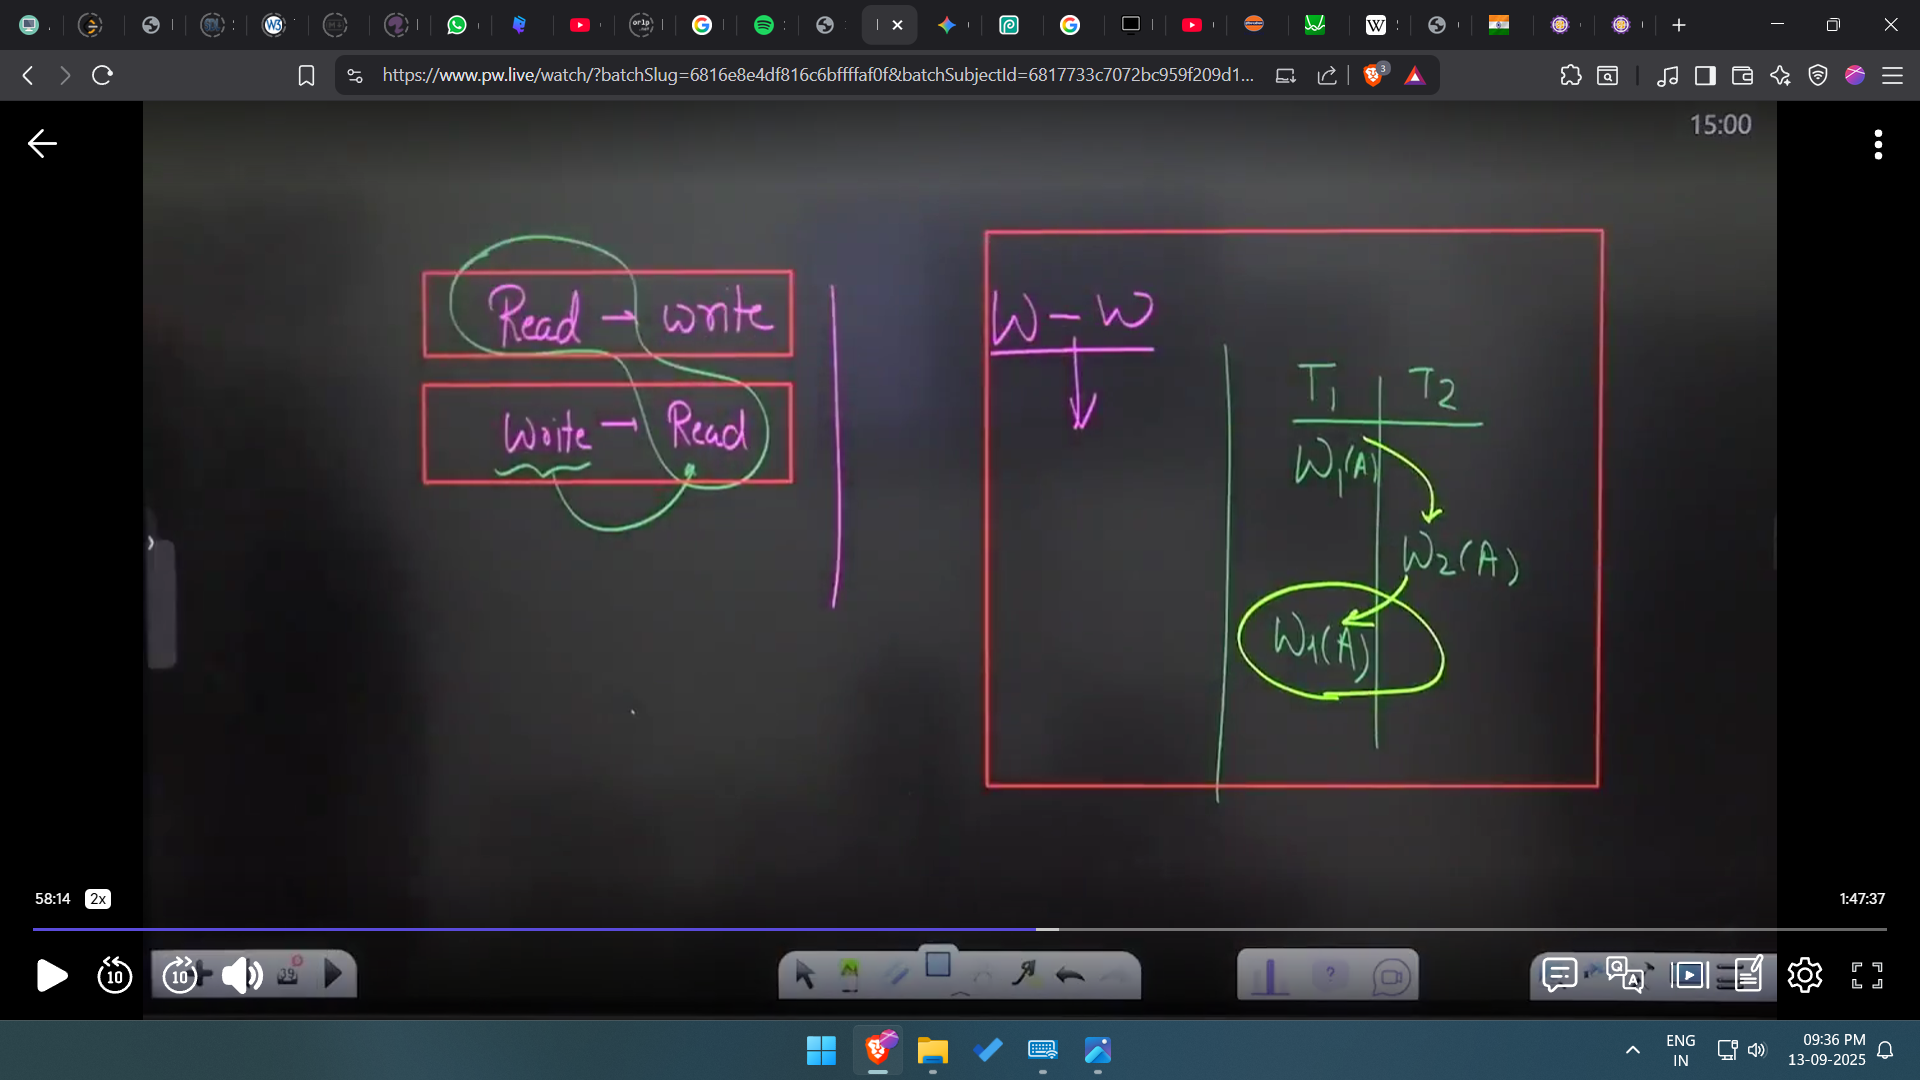 https://www.pw.live/watch/?batchSlug=6816e8e4df816c6bffffaf0f&batchSubjectId=6817733c7072bc959f209d1...
3
15:00
Read → write
Write → Read
W - W
T1 T2
W1(A)
W2(A)
W1(A)
58:14 2x
1:47:37
10
10
39
?
Q A
ENG
IN
09:36 PM
13-09-2025